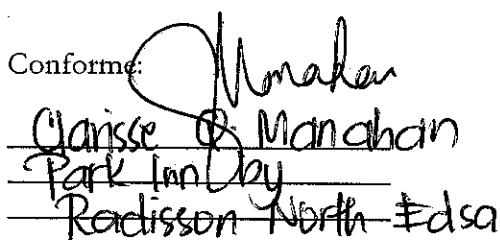 Conforme: Manahan
Clarisse Q. Manahan
Park Inn by
Radisson North Edsa